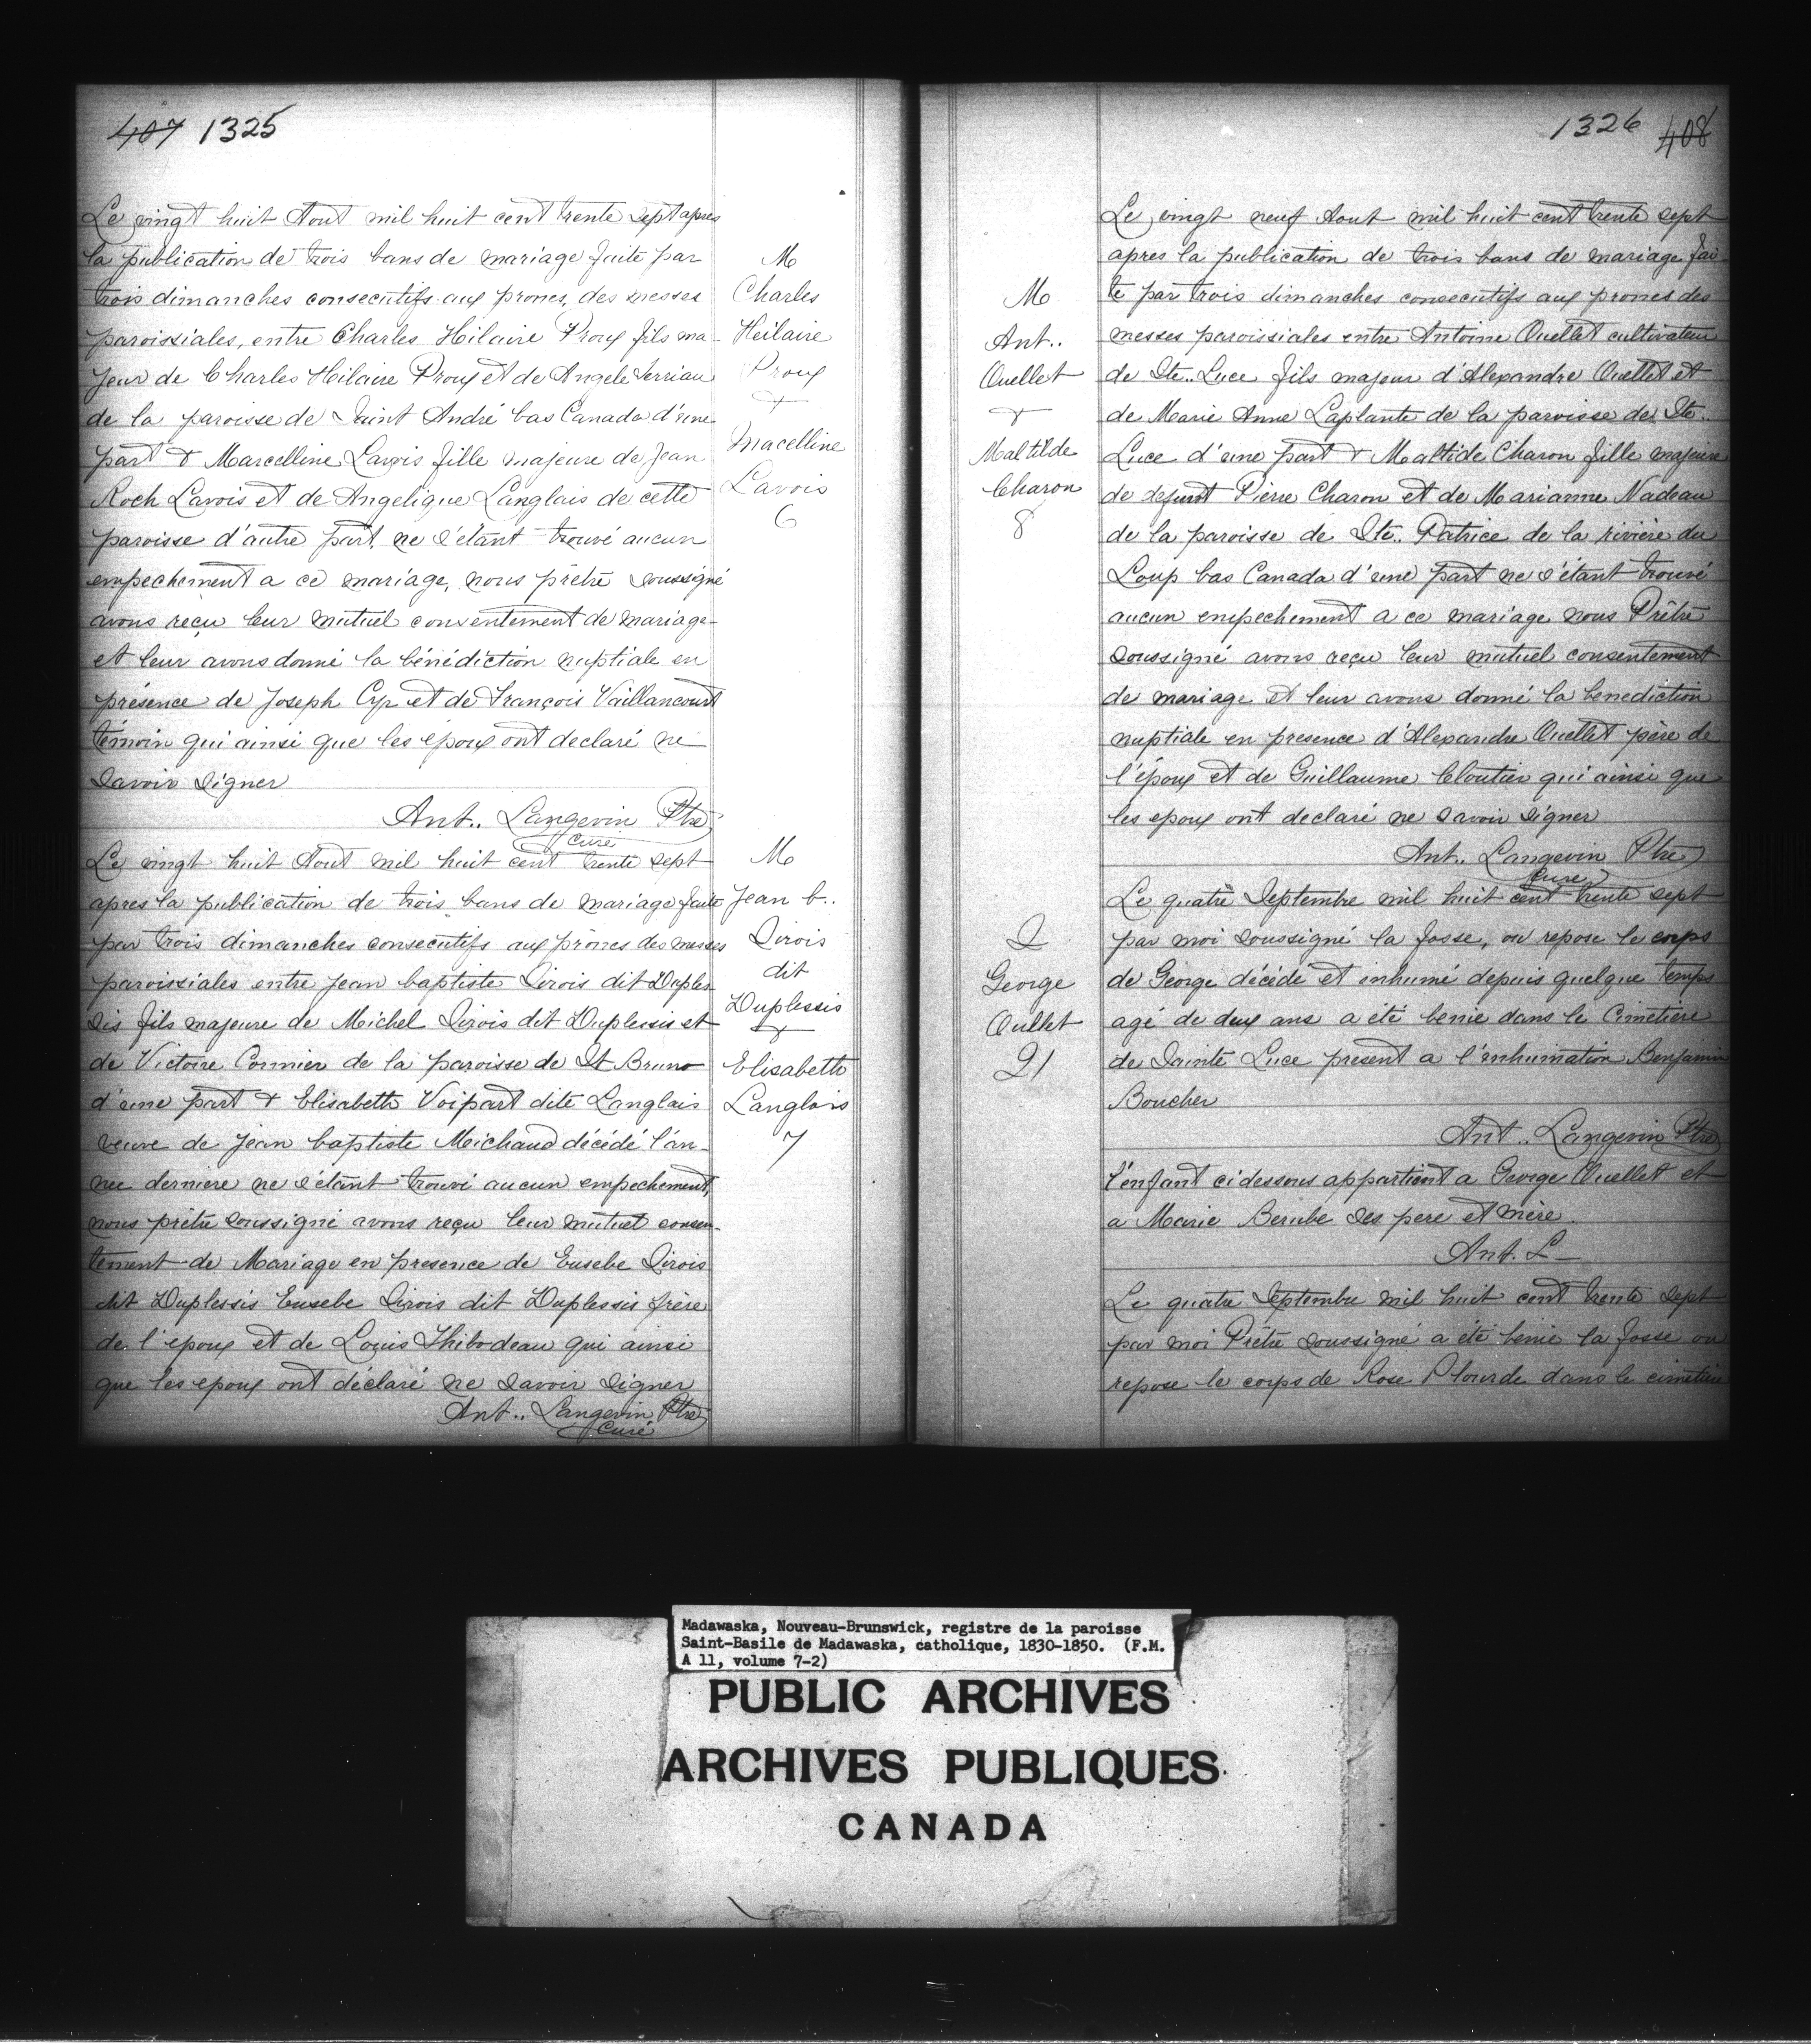 407 1325
Le vingt huit Aout mil huit cent trente sept apres
la publication de trois bans de mariage faite par
trois dimanches consecutifs aux prones, des messes
paroissiales, entre Charles Hilaire Proux fils ma-
jeur de Charles Hilaire Proux et de Angele Terriau
de la paroisse de Saint André bas Canada d'une
part & Marcelline Lavois fille majeure de Jean
Roch Lavois et de Angelique Langlais de cette
paroisse d'autre part, ne s'étant trouvé aucun
empechement a ce mariage, nous prêtre soussigné
avons reçu leur mutuel consentement de mariage
et leur avons donné la bénédiction nuptiale en
présence de Joseph Cyr et de François Vaillancourt
témoin qui ainsi que les epoux ont declaré ne
savoir signer
Ant.. Langevin Ptre
Curé
M
Charles
Heilaire
Proux
&
Macelline
Lavois
6
Le vingt huit Aout mil huit cent trente sept
apres la publication de trois bans de mariage faite
par trois dimanches consecutifs aux prônes des messes
paroissiales entre Jean baptiste Sirois dit Duples
sis fils majeure de Michel Sirois dit Duplessis et
de Victoire Cormier de la paroisse de St Bruno
d'une part & Elisabeth Voipart dite Langlais
veuve de Jean baptiste Michaud décédé l'an-
née derniere ne s'étant trouvé aucun empechement,
nous prêtre soussigné avons reçu leur mutuel consen-
tement de Mariage en presence de Eusebe Sirois
dit Duplessis Eusebe Sirois dit Duplessis frère
de l'epoux et de Louis Thibodeau qui ainsi
que les epoux ont déclaré ne savoir signer
Ant.. Langevin Ptre
Curé
M
Jean b..
Sirois
dit
Duplessis
&
Elisabeth
Langlois
7
1326 408
Le vingt neuf Aout mil huit cent trente sept
apres la publication de trois bans de mariage fai-
te par trois dimanches consecutifs aux prones des
messes paroissiales entre Antoine Ouellet cultivateur
de Ste.. Luce fils majeur d'Alexandre Ouellet et
de Marie Anne Laplante de la paroisse de Ste..
Luce d'une part & Maltide Charon fille majeure
de defunt Pierre Charon et de Marianne Nadeau
de la paroisse de Ste.. Patrice de la rivière du
Loup bas Canada d'une part ne s'étant trouvé
aucun empechement a ce mariage nous Prêtre
soussigné avons reçu leur mutuel consentement
de mariage et leur avons donné la benediction
nuptiale en presence d'Alexandre Ouellet père de
l'époux et de Guillaume Cloutier qui ainsi que
les epoux ont declaré ne savoir signer
Ant.. Langevin Ptre
Curé
M
Ant..
Ouellet
&
Maltilde
Charon
8
Le quatre Septembre mil huit cent trente sept
par moi soussigné la fosse, ou repose le corps
de George décédé et inhumé depuis quelque temps
agé de deux ans a été benie dans le Cimetière
de Sainte Luce present a l'inhumation Benjamin
Boucher
Ant.. Langevin Ptre
l'enfant ci dessous appartient a George Ouellet et
a Marie Berube ses pere et mère.
Ant. L
S
George
Oullet
21
Le quatre Septembre mil huit cent trente sept
par moi Prêtre soussigné a été benie la fosse ou
repose le corps de Rose Plourde dans le cimetiere
Madawaska, Nouveau-Brunswick, registre de la paroisse
Saint-Basile de Madawaska, catholique, 1830-1850. (F.M.
A 11, volume 7-2)
PUBLIC ARCHIVES
ARCHIVES PUBLIQUES
CANADA